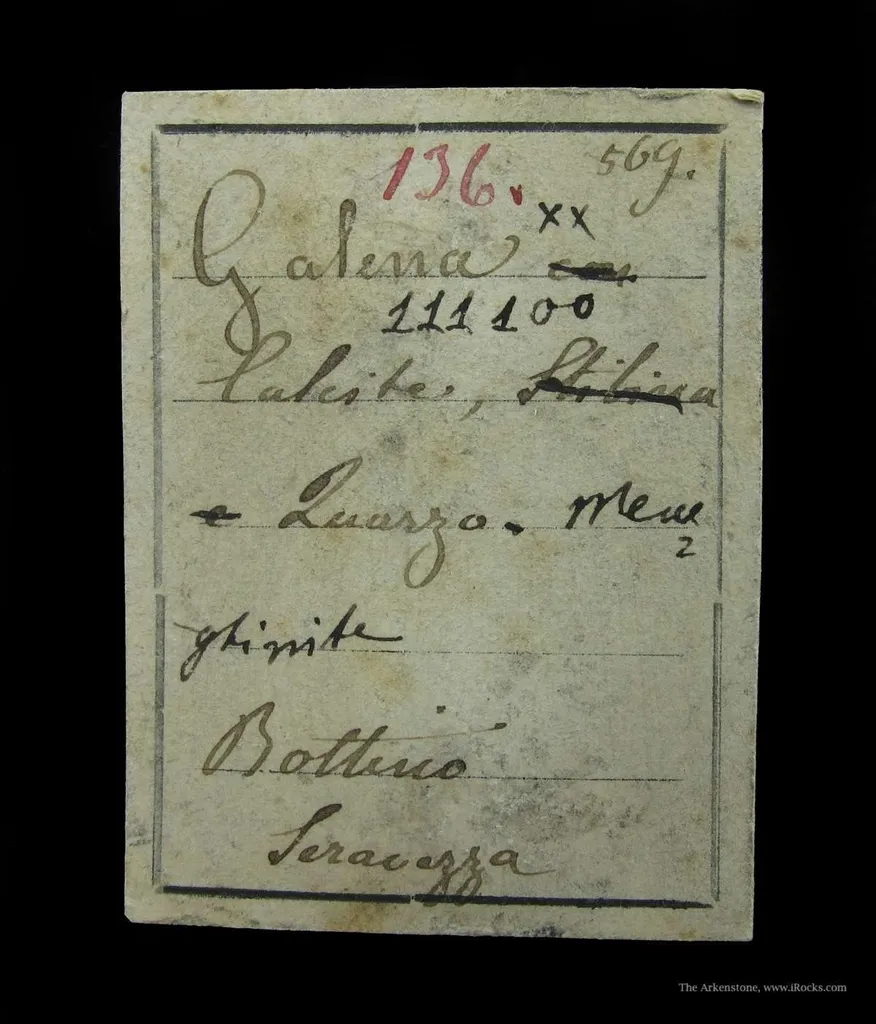 136. 569.
Galena xx
111 100
Calcite, Stibina
e Quarzo. Mene
2
ghinite
Bottino
Seravezza
The Arkenstone, www.iRocks.com